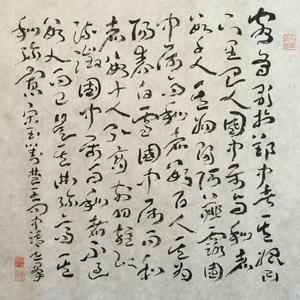 客有歌於郢中者其始曰
下里巴人國中屬而和者
數千人其為陽阿薤露國
中屬而和者數百人其為
陽春白雪國中屬而和
者數十人引商刻羽雜以
流徵國中屬而和者不過
數人而已是其曲彌高其
和彌寡 宋玉答楚王問